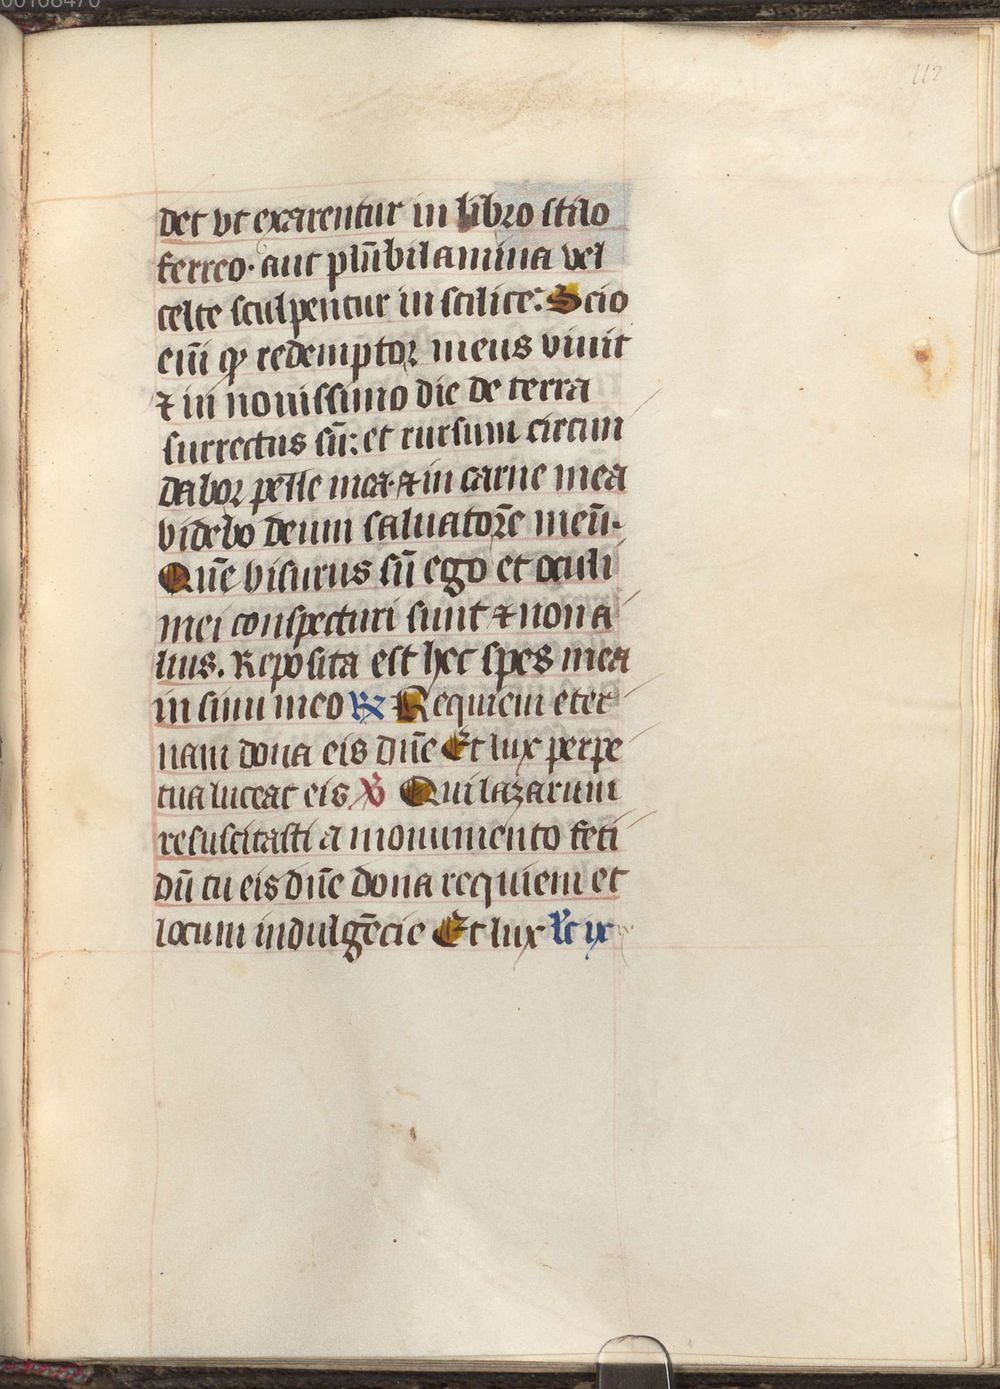 00108470
112
det vt exarentur in libro stilo
ferreo· aut plūbi lamina vel
celte sculpentur in scilice: Scio
eni̅ qꝫ redemptor meus viuit
⁊ in nouissimo die de terra
surrectus su̅: et rursum circun
dabor pelle mea· ⁊ in carne mea
videbo deum saluatore̅ meu̅·
Que̅ visurus su̅ ego et oculi
mei conspecturi sunt ⁊ non a
lius. Reposita est hec spes mea
in sinu meo ℞ Requiem eter
nam dona eis dn̅e Et lux perpe
tua luceat eis ℣ Qui lazarum
resuscitasti a monumento feti
du̅ tu eis dn̅e dona requiem et
locum indulge̅cie Et lux lc̅ ix